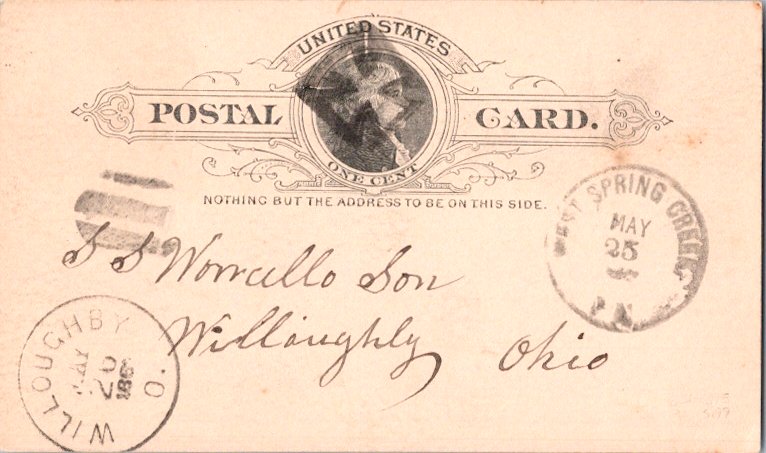 UNITED STATES
POSTAL CARD.
ONE CENT
NOTHING BUT THE ADDRESS TO BE ON THIS SIDE.
WEST SPRING CREEK
MAY
25
PA
S S Worrcello Son
Willoughby Ohio
WILLOUGHBY O.
MAY
26